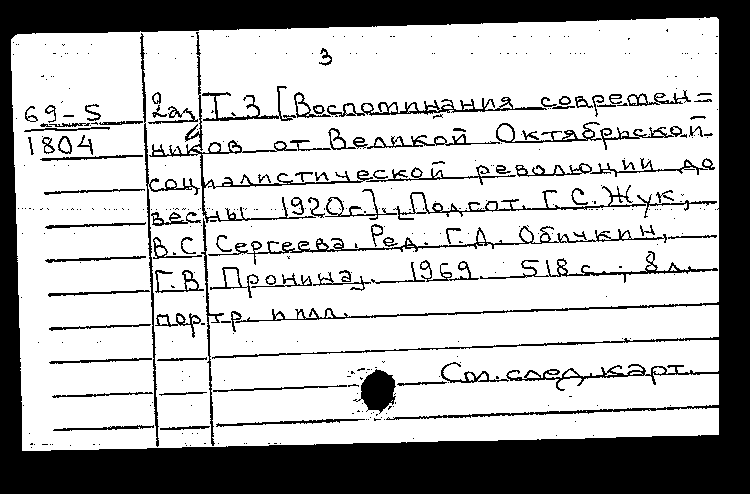 3
69-S
1804
2аз Т.3 [Воспоминания современ=
ников от Великой Октябрьской
социалистической революции до
весны 1920г.]. Подгот. Г.С.Жук,
В.С. Сергеева. Ред. Г.Д. Обичкин,
Г.В Пронина. 1969. 518 с., 8 л.
портр. и илл.
См.след.карт.